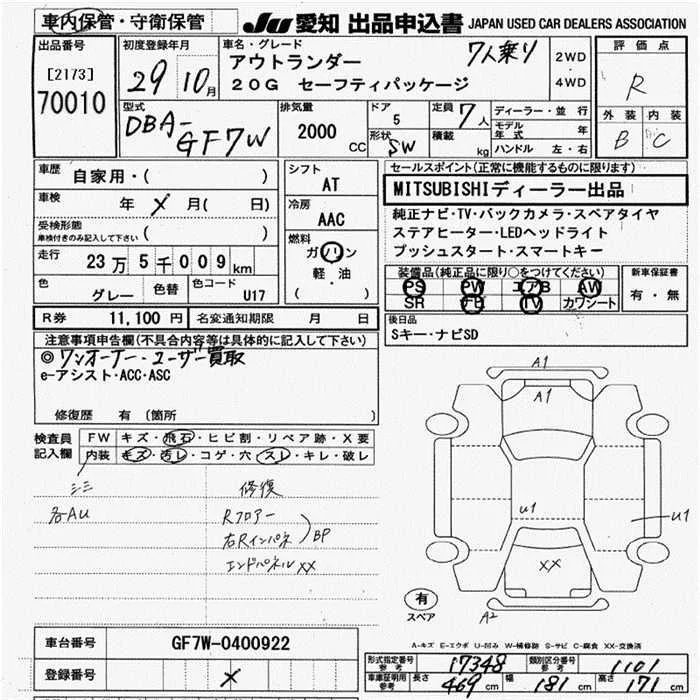 車内保管・守衛保管
JU 愛知 出品申込書 JAPAN USED CAR DEALERS ASSOCIATION
出品番号
[2173]
70010
初度登録年月
29 10月
車名・グレード
アウトランダー 7人乗り
20G セーフティパッケージ
2WD
・
4WD
評価点
R
外装 内装
B C
型式
DBA-
GF7W
排気量
2000
CC
ドア
5
形状
SW
定員 7人
積載 kg
ディーラー・並行
モデル年式 年
ハンドル 左・右
車歴 自家用・( )
車検 年 ✗ 月( 日)
受検形態
車検付きのみ記入して下さい ( )
走行 23万5千009km
色 グレー 色替 色コード U17
シフト
AT
冷房
AAC
燃料
ガソリン
軽・油
( )
セールスポイント(正常に機能するものに限ります)
MITSUBISHIディーラー出品
純正ナビ・TV・バックカメラ・スペアタイヤ
ステアヒーター・LEDヘッドライト
プッシュスタート・スマートキー
装備品(純正品に限り○をつけてください)
PS PW エアB AW
SR ナビ TV カワシート
新車保証書
有・無
R券 11,100円 名変通知期限 月 日
後日品
Sキー・ナビSD
注意事項申告欄(不具合内容等は具体的に記入して下さい)
◎ワンオーナー・ユーザー買取
e-アシスト・ACC・ASC
修復歴 有 (箇所 )
検査員
記入欄
FW キズ・飛石・ヒビ割・リペア跡・X要
内装 キズ・汚レ・コゲ・穴・スレ・キレ・破レ
修復
各AU
Rフロアー
右Rインパネ
BP
エンドパネルXX
A1
A1
U1
U1
XX
有
スペア
A2
A-キズ E-エクボ U-凹み W-補修跡 S-サビ C-腐食 XX-交換済
車台番号 GF7W-0400922
登録番号 ✗
形式指定番号参考 17348 類別区分番号参考 1101
車庫証明用参考 長さ 469cm 幅 181cm 高さ 171cm